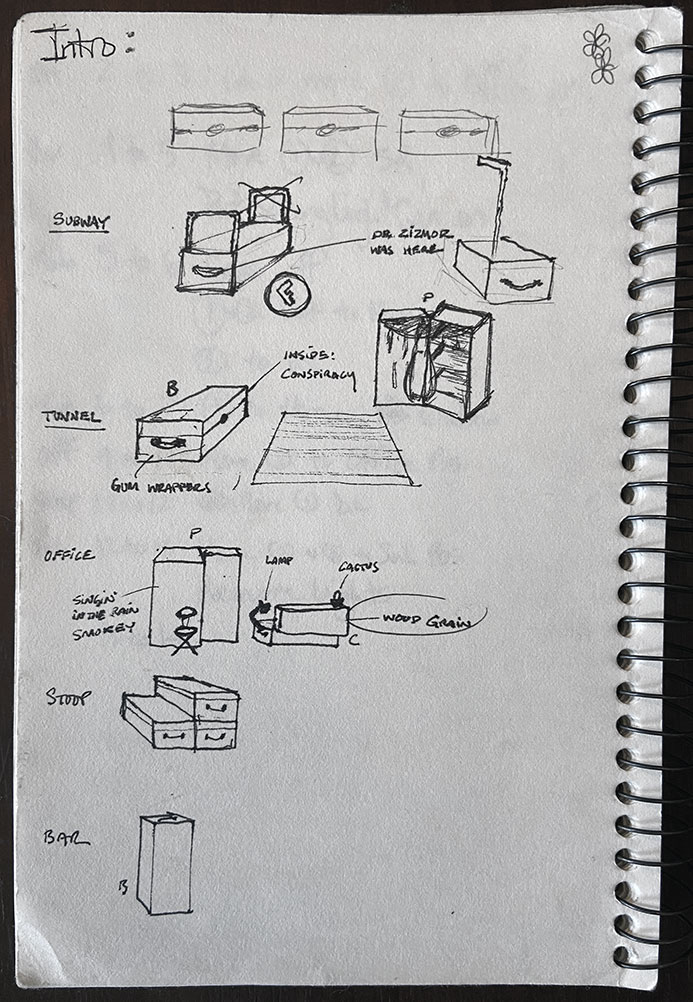 Intro:
SUBWAY
DR. ZIZMOR
WAS HERE
E
P
INSIDE:
CONSPIRACY
B
TUNNEL
GUM WRAPPERS
OFFICE
P
LAMP
CACTUS
SINGIN'
IN THE RAIN
SMOKEY
WOOD GRAIN
C
STOOP
BAR
B